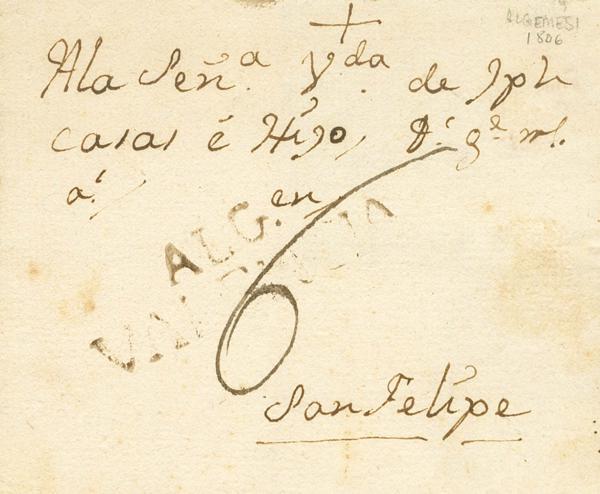 ALGEMESI
1806
A la Señ.ª V.da de Jph
casas é Hijo, D.s g.e m.s
a.s en
ALG.
VALENCIA
6
San Felipe